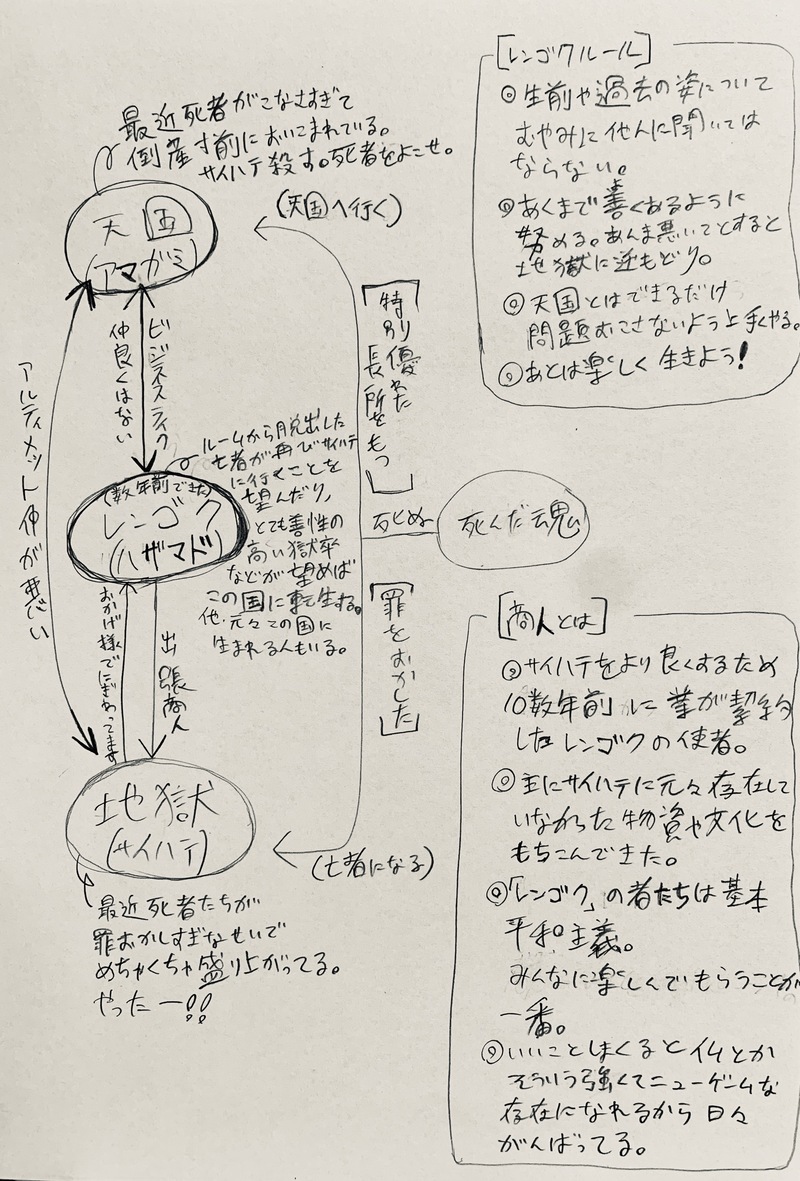 最近死者がこなさすぎて
倒産寸前においこまれている。
サイハテ殺す。死者をよこせ。
天国
(アマガミ)
(天国へ行く)
[特別優れた
長所をもつ]
ビジネスライク
仲良くはない
アルティメット仲が悪い
ルームから脱出した
亡者が再びサイハテ
に行くことを
望んだり、
とても善性の
高い獄卒
などが望めば
この国に転生する。
他、元々この国に
生まれる人もいる。
(数年前できた)
レンゴク
(ハザマド)
死ぬ
死んだ魂
[罪をおかした]
出張商人
おかげ様でにぎわってます
地獄
(サイハテ)
(亡者になる)
最近死者たちが
罪おかしすぎなせいで
めちゃくちゃ盛り上がってる。
やったー!!
[レンゴクルール]
◎生前や過去の姿について
むやみに他人に聞いては
ならない。
◎あくまで善くあるように
努める。あんま悪いことすると
地獄に逆もどり。
◎天国とはできるだけ
問題おこさないよう上手くやる。
◎あとは楽しく生きよう!
[商人とは]
◎サイハテをより良くするため
10数年前に華が契約
したレンゴクの使者。
◎主にサイハテに元々存在して
いなかった物資や文化を
もちこんできた。
◎「レンゴク」の者たちは基本
平和主義。
みんなに楽しんでもらうことが
一番。
◎いいことしまくるとイムとか
そういう強くてニューゲームな
存在になれるから日々
がんばってる。